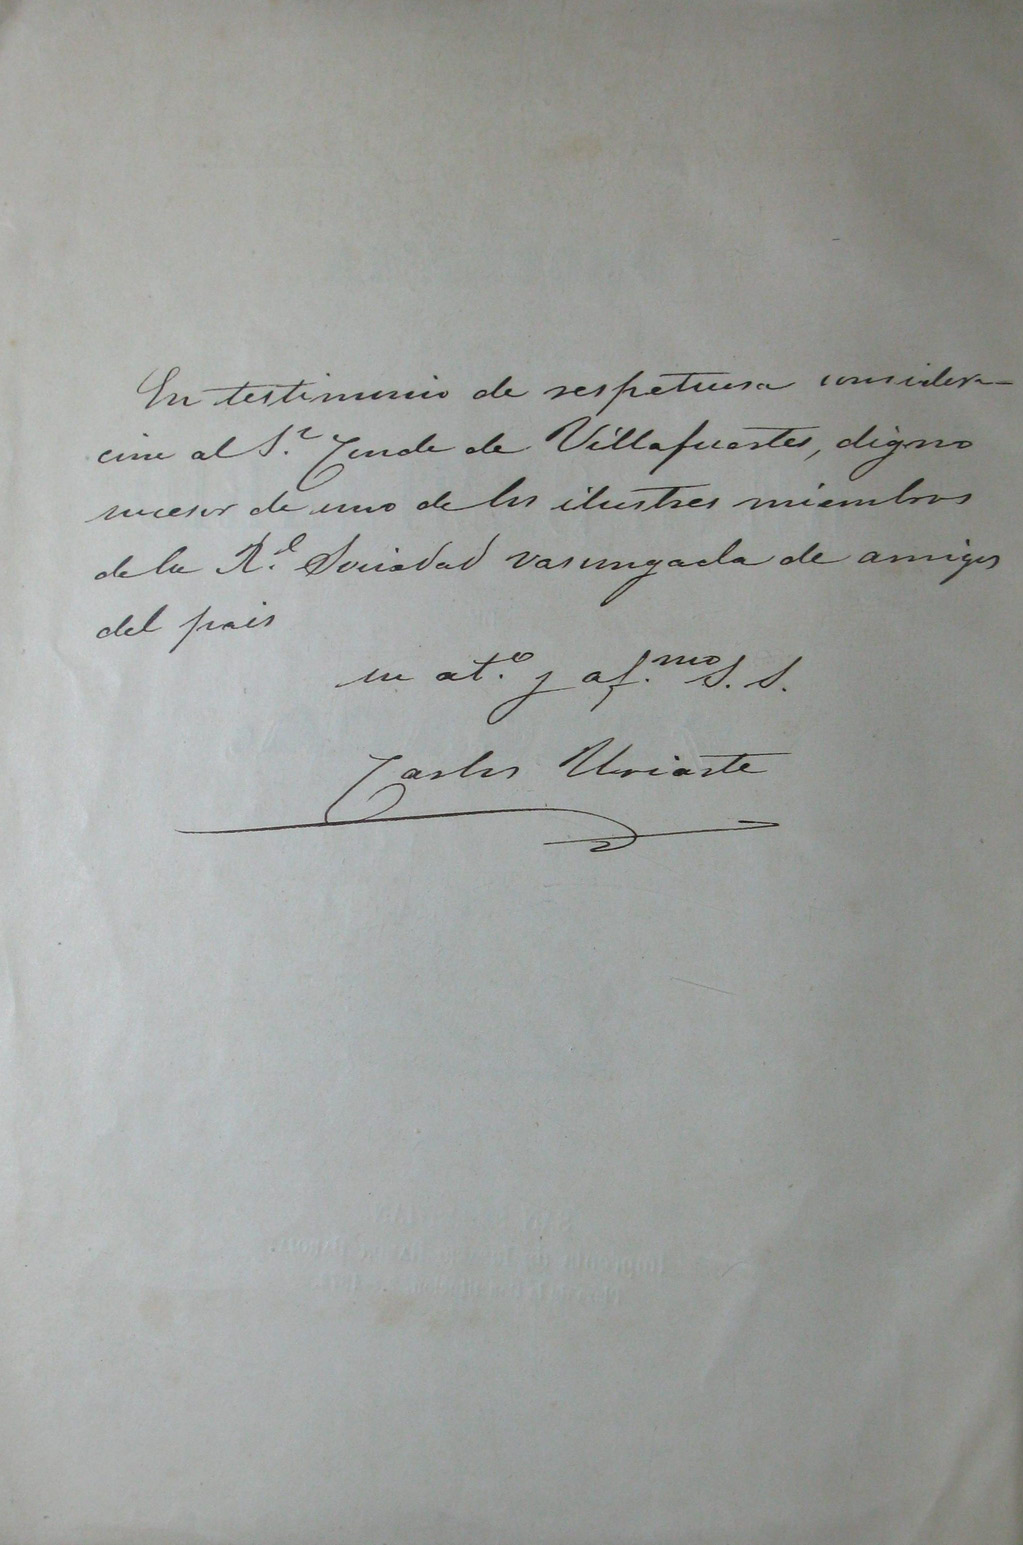 En testimonio de respetuosa considera-
cion al S.r Conde de Villafuertes, digno
sucesor de uno de los ilustres miembros
de la R.l Sociedad vascongada de amigos
del pais
su at.o y af.mo S. S.
Carlos Uriarte
SAN
Imprenta de Ignacio Ramon Baroja